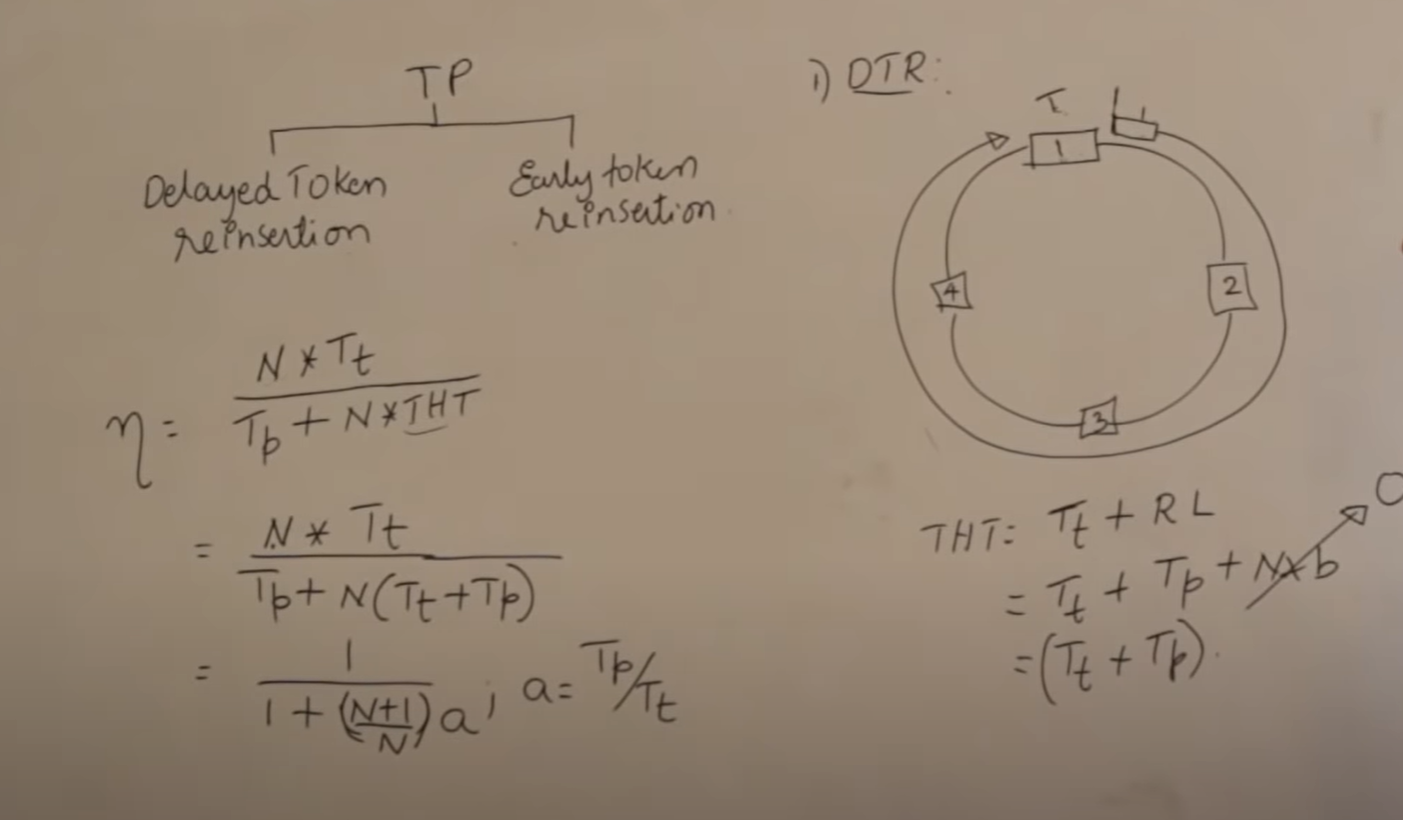 TP
Delayed Token
reinsertion
Early token
reinsertion
η = N * Tt / Tp + N * THT
= N * Tt / Tp + N(Tt + Tp)
= 1 / 1 + (N+1/N) a , a = Tp/Tt
1) DTR:
T
1
2
3
4
THT = Tt + RL
= Tt + Tp + N×b 0
= (Tt + Tp)